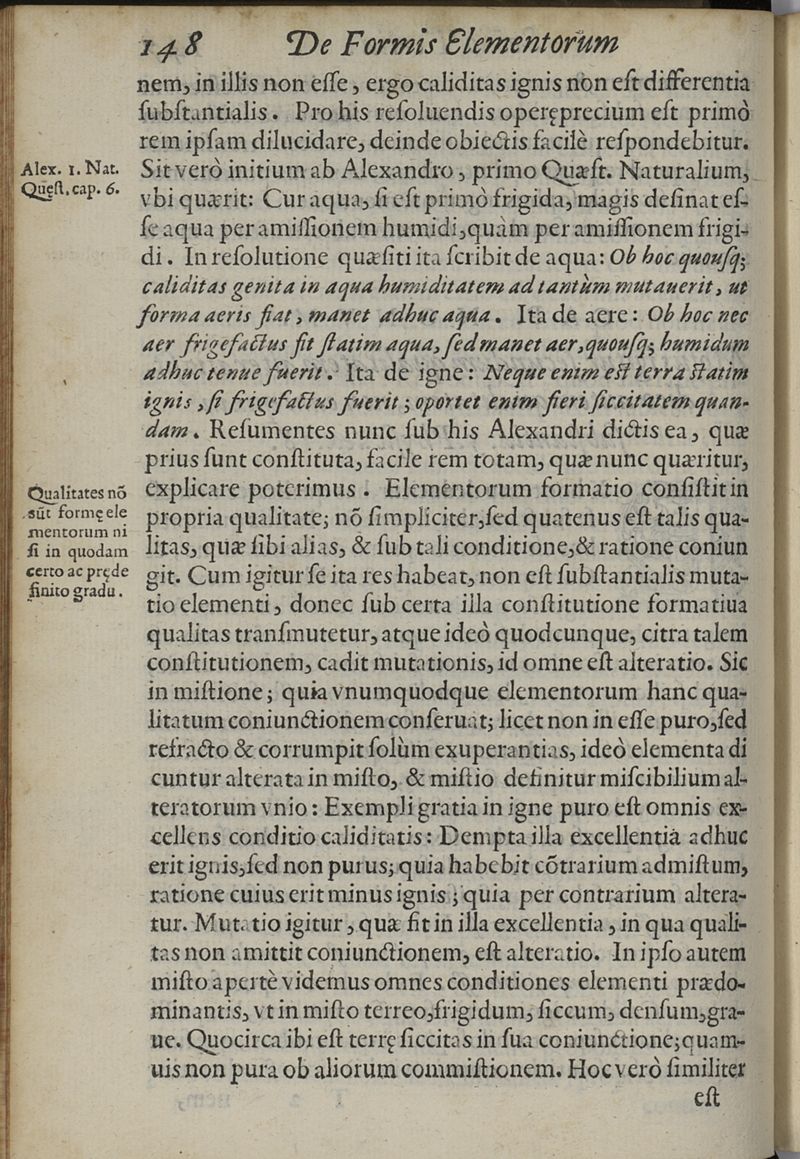 148 De Formis Elementorum
nem, in illis non eſſe, ergo caliditas ignis non eſt differentia
ſubſtantialis. Pro his reſoluendis operęprecium eſt primò
rem ipſam dilucidare, deinde obiectis facilè reſpondebitur.
Alex. 1. Nat.
Quęſt. cap. 6.
Sit verò initium ab Alexandro, primo Quæſt. Naturalium,
vbi quærit: Cur aqua, ſi eſt primò frigida, magis deſinat eſ-
ſe aqua per amiſſionem humidi, quàm per amiſſionem frigi-
di. In reſolutione quæſiti ita ſcribit de aqua: Ob hoc quouſq;
caliditas genita in aqua humiditatem ad tantùm mutauerit, ut
forma aeris fiat, manet adhuc aqua. Ita de aere: Ob hoc nec
aer frigefactus fit ſtatim aqua, ſed manet aer, quouſq; humidum
adhuc tenue fuerit. Ita de igne: Neque enim eſt terra ſtatim
ignis, ſi frigefactus fuerit; oportet enim fieri ſiccitatem quan-
dam. Reſumentes nunc ſub his Alexandri dictis ea, quæ
prius ſunt conſtituta, facile rem totam, quæ nunc quæritur,
Qualitates nō
sūt formę ele
mentorum ni
ſi in quodam
certo ac pręde
finito gradu.
explicare poterimus. Elementorum formatio conſiſtit in
propria qualitate; nō ſimpliciter, ſed quatenus eſt talis qua-
litas, quæ ſibi alias, & ſub tali conditione, & ratione coniun
git. Cum igitur ſe ita res habeat, non eſt ſubſtantialis muta-
tio elementi, donec ſub certa illa conſtitutione formatiua
qualitas tranſmutetur, atque ideò quodcunque, citra talem
conſtitutionem, cadit mutationis, id omne eſt alteratio. Sic
in miſtione; quia vnumquodque elementorum hanc qua-
litatum coniunctionem conſeruat; licet non in eſſe puro, ſed
refracto & corrumpit ſolùm exuperantias, ideò elementa di
cuntur alterata in miſto, & miſtio definitur miſcibilium al-
teratorum vnio: Exempli gratia in igne puro eſt omnis ex-
cellens conditio caliditatis: Dempta illa excellentia adhuc
erit ignis, ſed non purus; quia habebit cōtrarium admiſtum,
ratione cuius erit minus ignis; quia per contrarium altera-
tur. Mutatio igitur, quæ fit in illa excellentia, in qua quali-
tas non amittit coniunctionem, eſt alteratio. In ipſo autem
miſto apertè videmus omnes conditiones elementi prædo-
minantis, vt in miſto terreo, frigidum, ſiccum, denſum, gra-
ue. Quocirca ibi eſt terrę ſiccitas in ſua coniunctione; quam-
uis non pura ob aliorum commiſtionem. Hoc verò ſimiliter
eſt